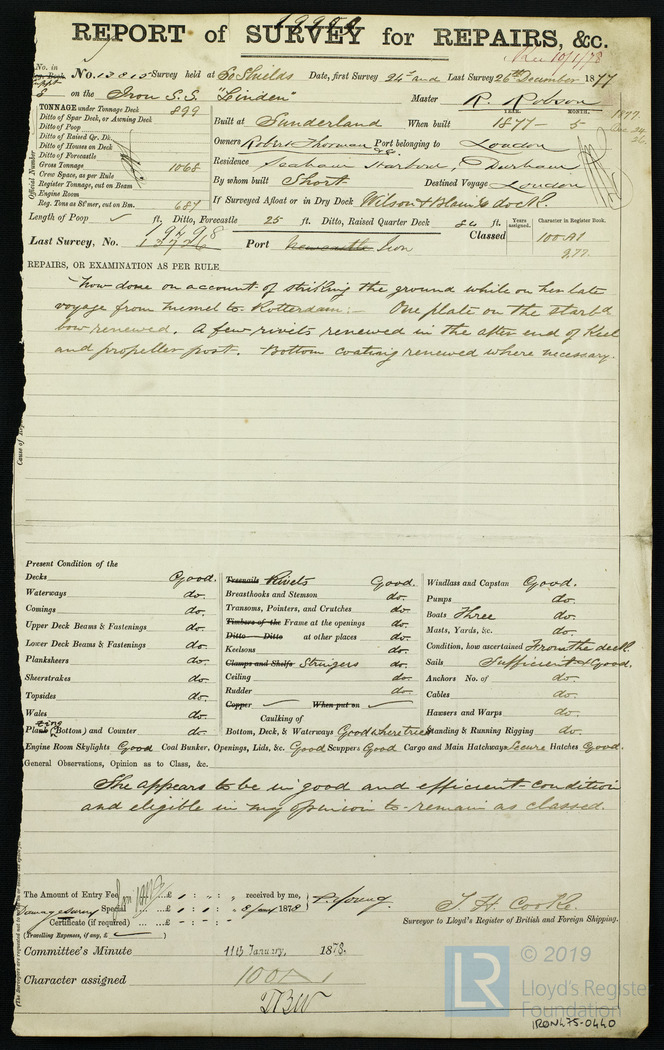 19998
REPORT of SURVEY for REPAIRS, &c.
Rec 10/1/78
No. in
No. 13813 Survey held at So Shields Date, first Survey 24th and Last Survey 26th December 1877
on the Iron S.S. "Linden" Master R. Robson
TONNAGE under Tonnage Deck 899
Ditto of Spar Deck, or Awning Deck
Ditto of Poop
Ditto of Raised Qr. Dk.
Ditto of Houses on Deck
Ditto of Forecastle
Gross Tonnage 1068
Crew Space, as per Rule
Register Tonnage, cut on Beam
Engine Room
Reg. Tons as SEmer, cut on Bm. 687
Official Number
YEAR. MONTH.
Built at Sunderland When built 1877 - 5
1877
Dec. 24.
26
Owners Robert Thorman Port belonging to London
Residence Seaham Harbour, Co Durham
By whom built Short Destined Voyage London
If Surveyed Afloat or in Dry Dock Wilson & Blain's dock.
Length of Poop ft. Ditto, Forecastle 25 ft. Ditto, Raised Quarter Deck 84 ft.
Years assigned. Character in Register Book.
Classed 100 A1
9.77.
19498
Last Survey, No. 13776 Port Newcastle Iron
REPAIRS, OR EXAMINATION AS PER RULE
Now done on account of striking the ground while on her late
voyage from Memel to Rotterdam:- One plate on the starbd
bow renewed. A few rivets renewed in the after end of Keel
and propeller post. Bottom coating renewed where necessary.
Present Condition of the
Decks Good.
Waterways do.
Comings do.
Upper Deck Beams & Fastenings do.
Lower Deck Beams & Fastenings do.
Planksheers do.
Sheerstrakes do.
Topsides do.
Wales do.
Plating (Bottom) and Counter do.
Treenails Rivets Good.
Breasthooks and Stemson do.
Transoms, Pointers, and Crutches do.
Timbers of the Frame at the openings do.
Ditto Ditto at other places do.
Keelsons do.
Clamps and Shelfs Stringers do.
Ceiling do.
Rudder do.
Copper When put on
Caulking of
Bottom, Deck, & Waterways Good where tried
Windlass and Capstan Good.
Pumps do.
Boats Three do.
Masts, Yards, &c. do.
Condition, how ascertained From the deck
Sails Sufficient & Good.
Anchors No. of do.
Cables do.
Hawsers and Warps do.
Standing & Running Rigging do.
Engine Room Skylights Good Coal Bunker, Openings, Lids, &c. Good Scuppers Good Cargo and Main Hatchways Secure Hatches Good.
General Observations, Opinion as to Class, &c.
She appears to be in good and efficient condition
and eligible in my opinion to remain as classed.
The Amount of Entry Fee £ 1 : " : " received by me,
Damage Survey Special £ 1 : 1 : " 8 Jany 1878 P. Young.
Certificate (if required) £ " : " : "
(Travelling Expenses, if any, £ )
T. H. Cooke.
Surveyor to Lloyd's Register of British and Foreign Shipping.
Committee's Minute 11th January, 1878.
Character assigned 100A1
© 2019
LR
Lloyd's Register
Foundation
IRON475-0440